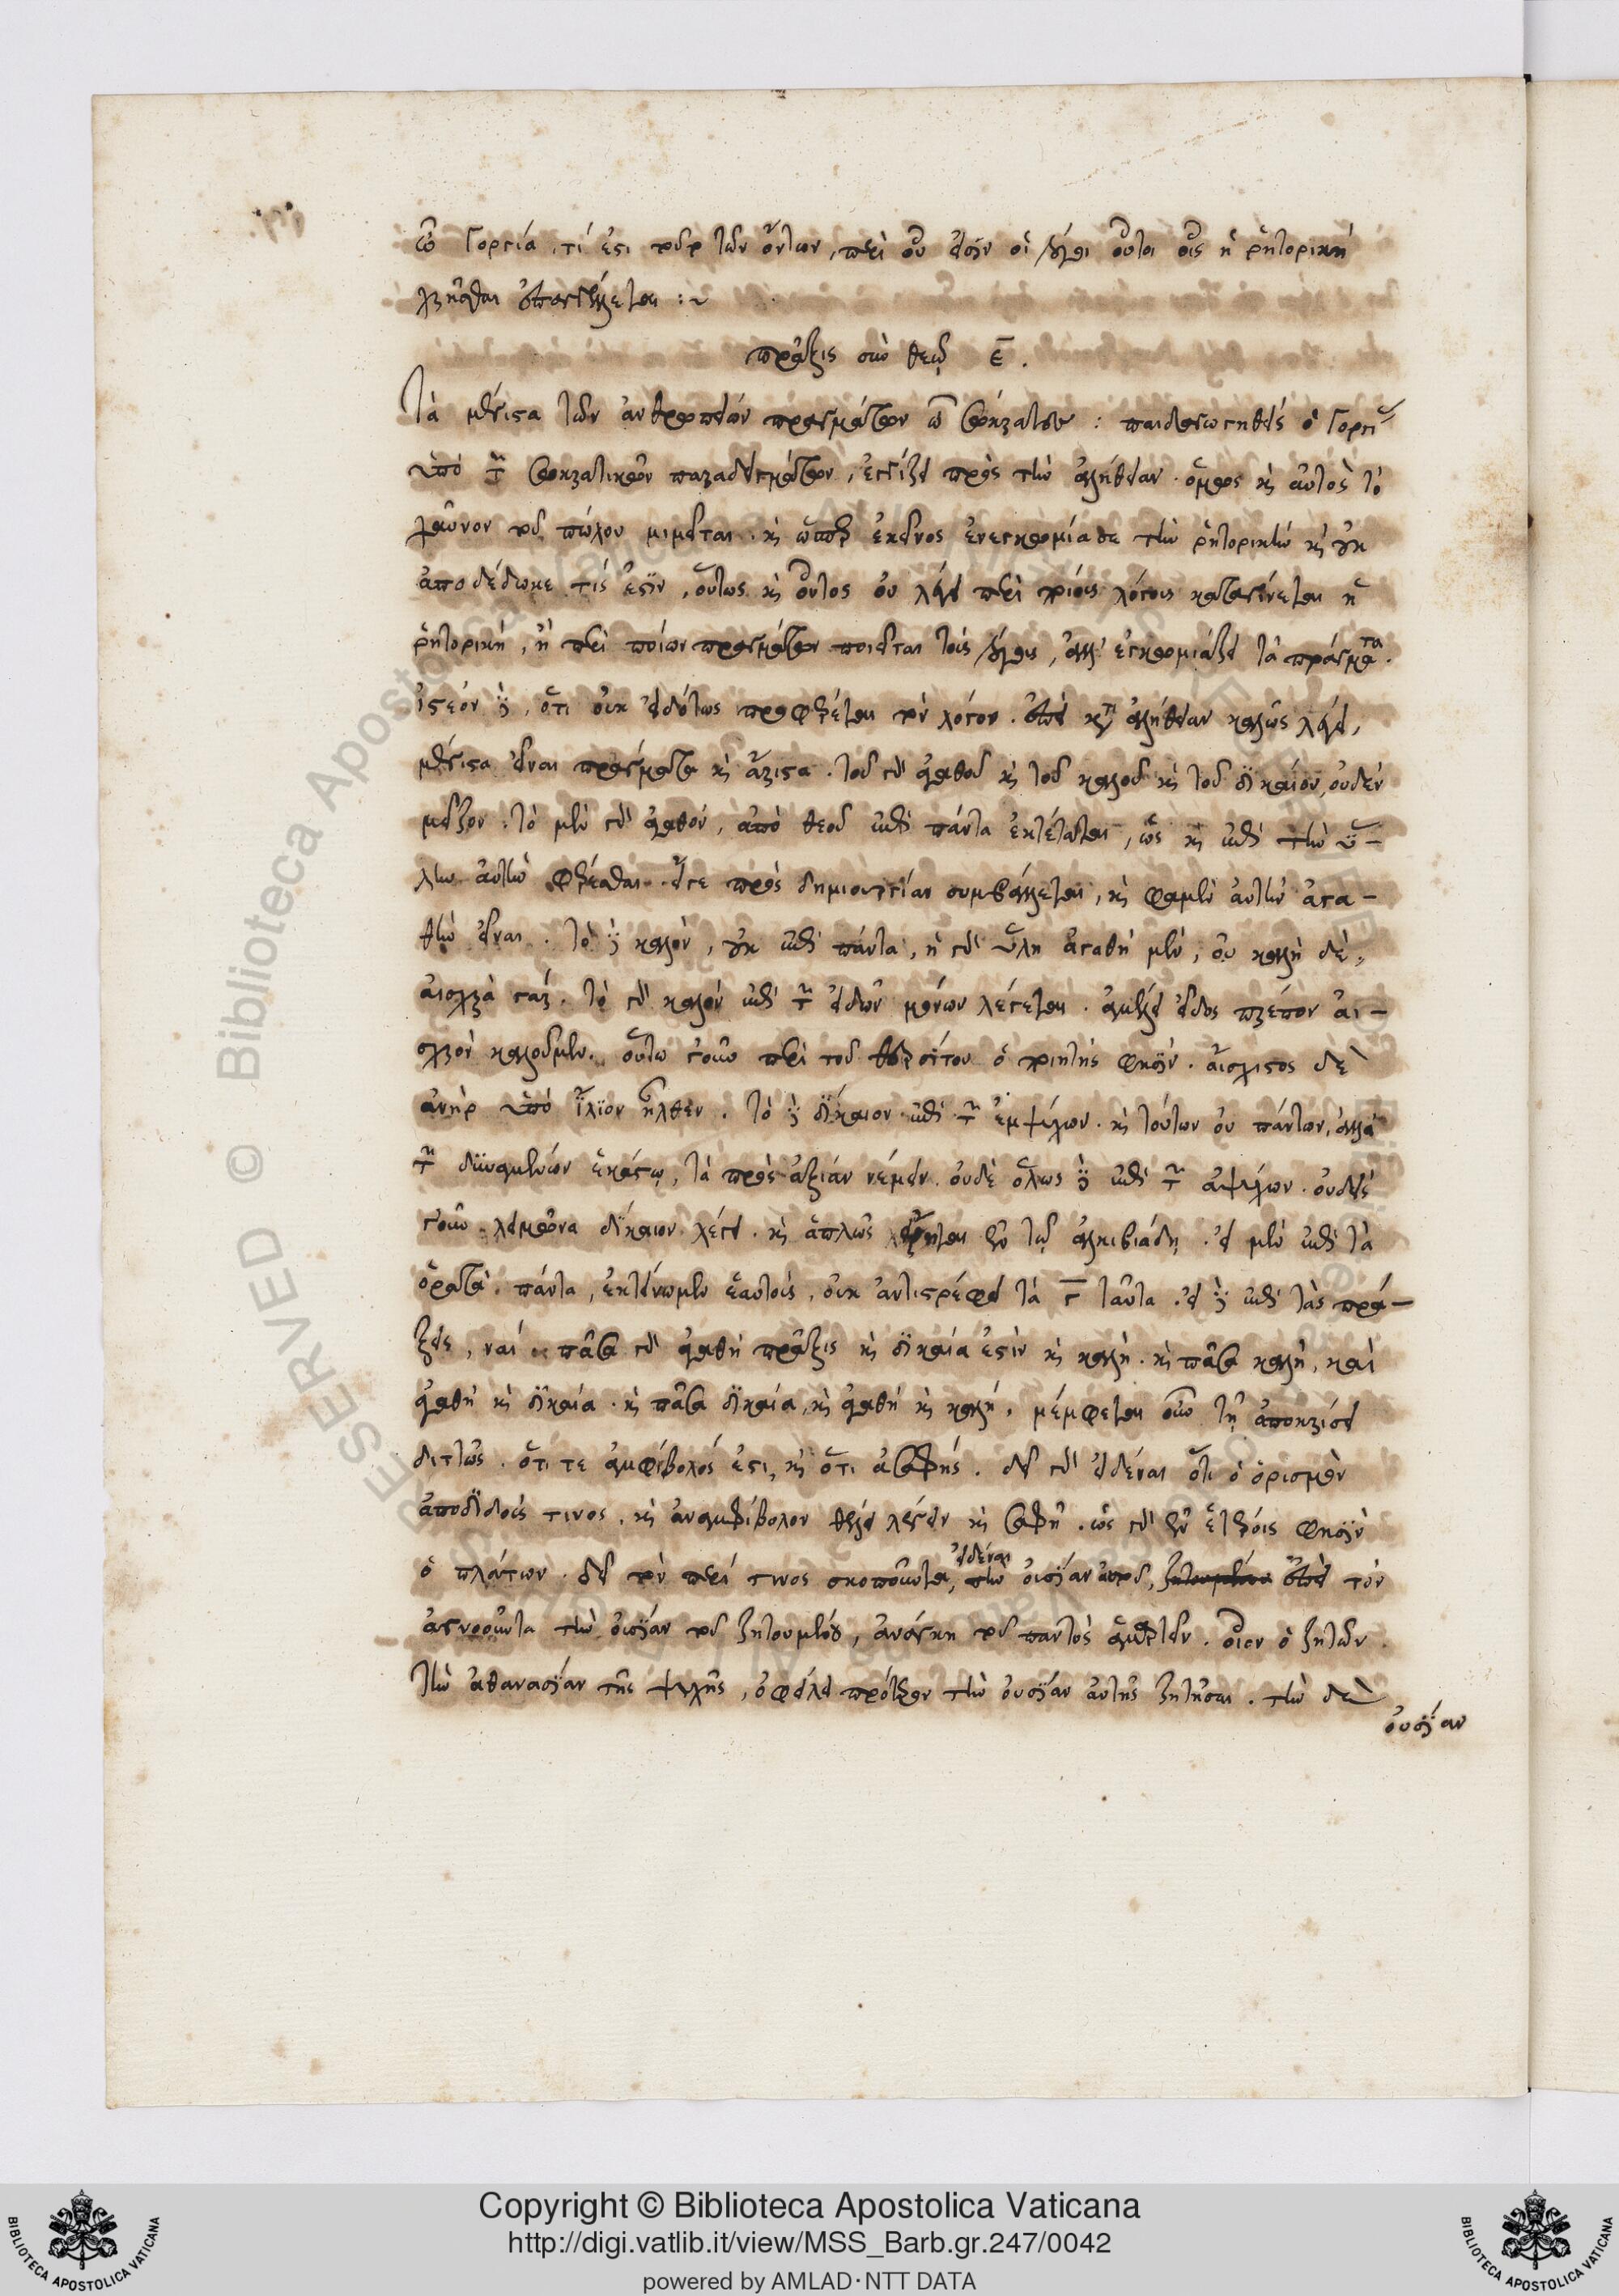 ὦ Γοργία, τί ἐστι τοῦτο τῶν ὄντων, περὶ οὗ εἰσὶν οἱ λόγοι οὗτοι οἷς ἡ ῥητορικὴ
χρῆσθαι ἐπαγγέλλεται :~
πρᾶξις σὺν θεῷ ε̄.
Τὰ μέγιστα τῶν ἀνθρωπείων πραγμάτων ὦ Σώκρατες : παιδαγωγηθεὶς ὁ Γοργίας
ὑπὸ τῶν Σωκρατικῶν παραδειγμάτων, ἐγγίζει πρὸς τὴν ἀλήθειαν. ὅμως καὶ αὐτὸς τὸ
χαῦνον τοῦ πώλου μιμεῖται. καὶ ὥσπερ ἐκεῖνος ἐνεκωμίασε τὴν ῥητορικὴν καὶ οὐκ
ἀποδέδωκε τίς ἐστϊν, οὕτως καὶ οὗτος οὐ λέγει περὶ ποίους λόγους καταγίνεται ἡ
ῥητορική, ἢ περὶ ποίων πραγμάτων ποιεῖται τοὺς λόγους, ἀλλ' ἐγκωμιάζει τὰ πράγματα.
ἰστέον δὲ, ὅτι οὐκ εἰδότως προφέρεται τὸν λόγον. ἐπεὶ κατὰ ἀλήθειαν καλῶς λέγει,
μέγιστα εἶναι πράγματα καὶ ἄριστα. τοῦ γὰρ ἀγαθοῦ καὶ τοῦ καλοῦ καὶ τοῦ δϊκαίου, οὐδὲν
μεῖζον. τὸ μὲν γὰρ ἀγαθόν, ἀπὸ θεοῦ ἐπὶ πάντα ἐκτέταται, ὡς καὶ ἐπὶ τὴν ὕ-
λην αὐτὴν φέρεσθαι. εἴγε πρὸς δημιουργίαν συμβάλλεται, καὶ φαμὲν αὐτὴν ἀγα-
θὴν εἶναι. τὸ δὲ καλὸν, οὐκ ἐπὶ πάντα, ἡ γὰρ ὕλη ἀγαθὴ μὲν, οὐ καλὴ δὲ,
αἰσχρὰ γάρ. τὸ γὰρ καλὸν ἐπὶ τῶν εἰδῶν μόνων λέγεται. ἀμέλει εἶδος πρέπον αἰ-
σχρὸν καλοῦμεν. οὕτω γοῦν περὶ τοῦ θερσίτου ὁ ποιητής φησϊν. αἴσχιστος δὲ
ἀνὴρ ὑπὸ ἴλϊον ἦλθεν. τὸ δὲ δϊκαιον ἐπὶ τῶν ἐμψύχων. καὶ τούτων οὐ πάντων, ἀλλὰ
τῶν δϋναμένων ἑκάστῳ, τὰ πρὸς ἀξίαν νέμειν. οὐδὲ ὅλως δὲ ἐπὶ τῶν ἀψύχων. οὐδεὶς
γοῦν λειμῶνα δϊκαιον λέγει. καὶ ἁπλῶς εἴρηται ἐν τῷ ἀλκιβιάδῃ. εἰ μὲν ἐπὶ τὰ
ὁρατὰ πάντα, ἐκτείνωμεν ἑαυτούς, οὐκ ἀντιστρέφει τὰ γ̄ ταῦτα. εἰ δὲ ἐπὶ τὰς πρά-
ξεις, ναί. πᾶσα γὰρ ἀγαθὴ πρᾶξις καὶ δϊκαία ἐστὶν καὶ καλή. καὶ πᾶσα καλὴ, καὶ
ἀγαθὴ καὶ δϊκαία. καὶ πᾶσα δϊκαία, καὶ ἀγαθὴ καὶ καλή. μέμφεται οὖν τῇ ἀποκρίσει
διττῶς. ὅτι τε ἀμφίβολός ἐστι, καὶ ὅτι ἀσαφής. δεῖ γὰρ εἰδέναι ὅτι ὁ ὁρισμὸν
ἀποδϊδούς τινος, καὶ ἀναμφίβολον θέλει λέγειν καὶ σαφῆ. ὡς γὰρ ἐν ἑτέροις φησϊν
ὁ πλάτων. δεῖ τὸν περί τινος σκοποῦντα, εἰδέναι τὴν οὐσϊαν αὐτοῦ, ἐπεὶ τὸν
ἀγνοοῦντα τὴν οὐσϊαν τοῦ ζητουμένου, ἀνάγκη τοῦ παντὸς ἁμαρτεῖν. οἷον ὁ ζητῶν
τὴν ἀθανασϊαν τῆς ψυχῆς, ὀφείλει πρότερον τὴν οὐσϊαν αὐτῆς ζητῆσαι. τὴν δὲ
οὐσϊαν
Copyright © Biblioteca Apostolica Vaticana
http://digi.vatlib.it/view/MSS_Barb.gr.247/0042
powered by AMLAD·NTT DATA